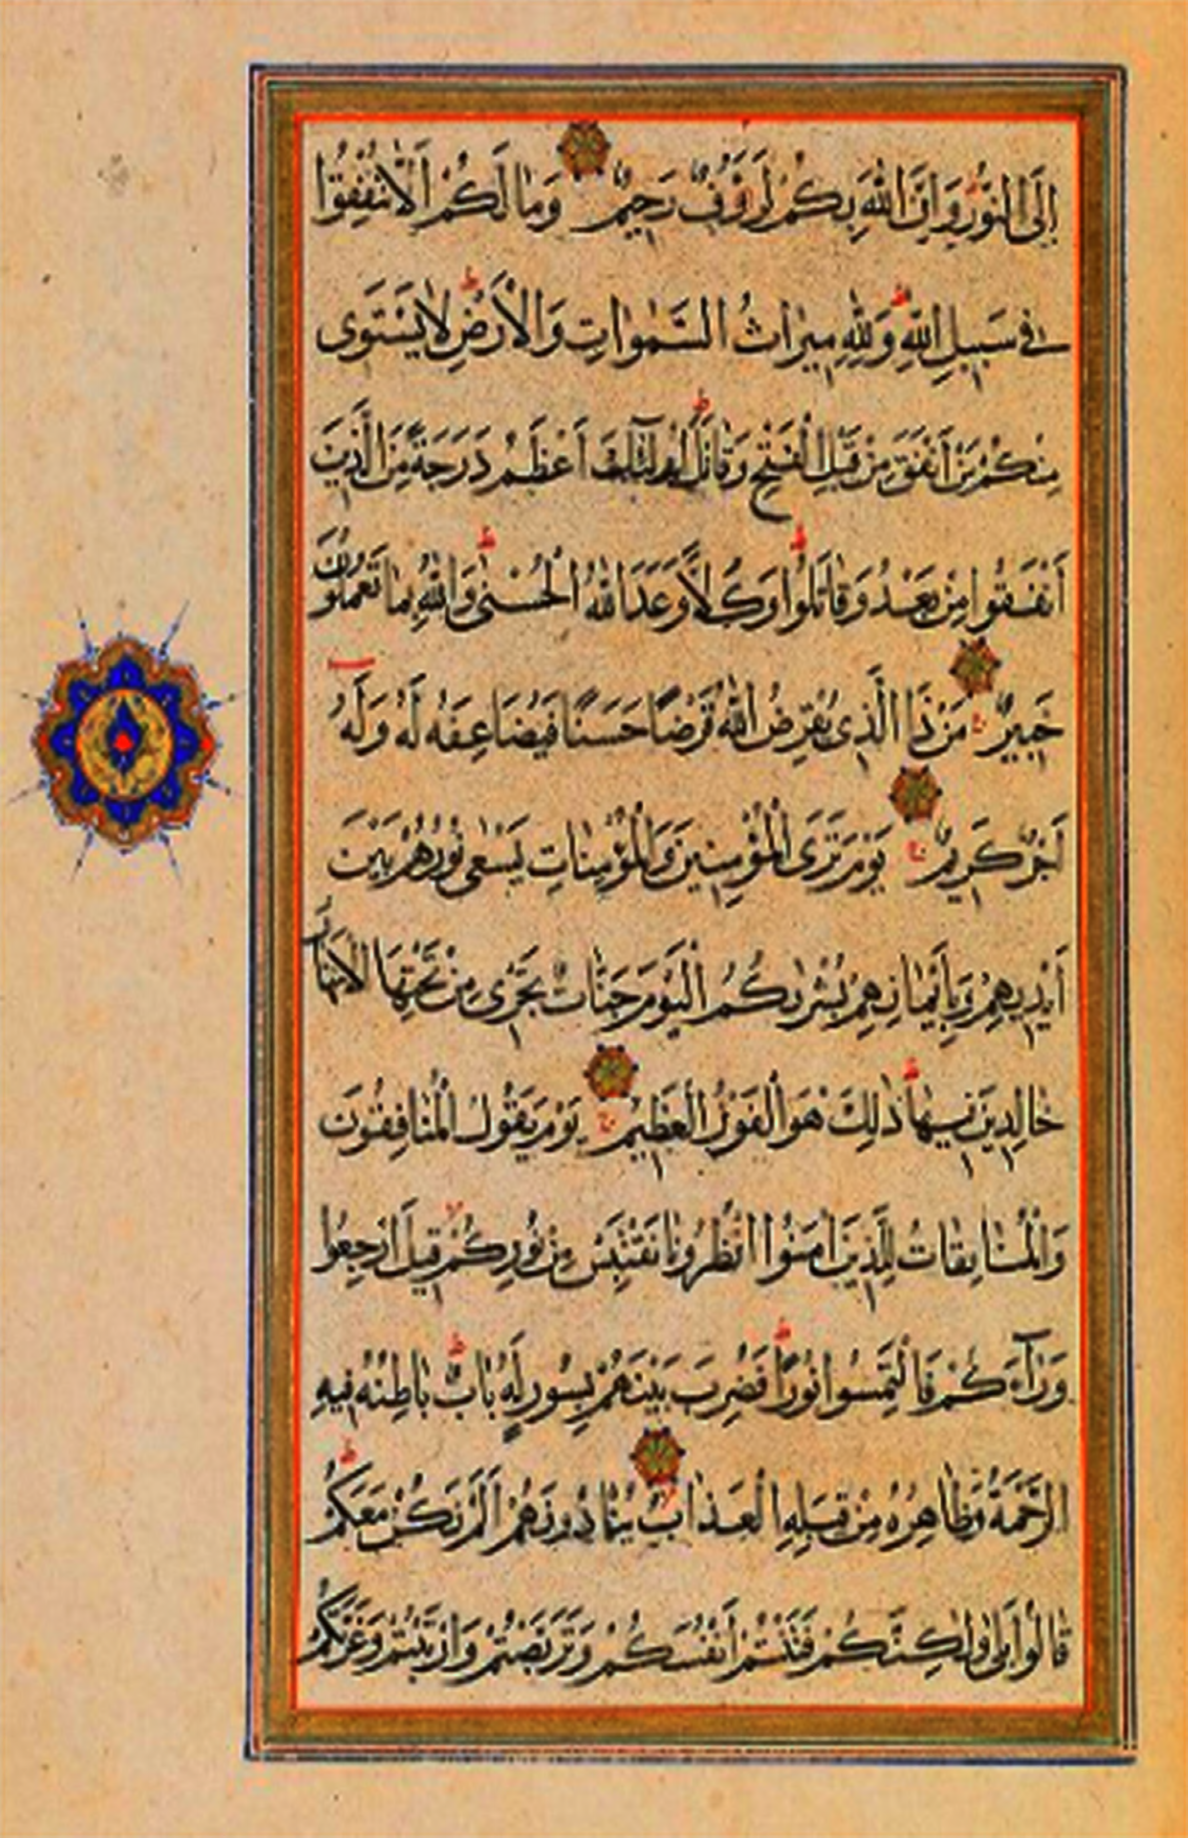 إِلَى النُّورِ وَإِنَّ اللهَ بِكُمْ لَرَؤُفٌ رَحِيمٌ وَمَا لَكُمْ أَلَّا تُنْفِقُوا
فِي سَبِيلِ اللهِ وَلِلّٰهِ مِيرَاثُ السَّمٰوَاتِ وَالْأَرْضِ لَا يَسْتَوِى
مِنْكُمْ مَنْ أَنْفَقَ مِنْ قَبْلِ الْفَتْحِ وَقَاتَلَ أُولٰئِكَ أَعْظَمُ دَرَجَةً مِنَ الَّذِينَ
أَنْفَقُوا مِنْ بَعْدُ وَقَاتَلُوا وَكُلًّا وَعَدَ اللهُ الْحُسْنٰى وَاللهُ بِمَا تَعْمَلُونَ
خَبِيرٌ مَنْ ذَا الَّذِى يُقْرِضُ اللهَ قَرْضًا حَسَنًا فَيُضَاعِفَهُ لَهُ وَلَهُ
أَجْرٌ كَرِيمٌ يَوْمَ تَرَى الْمُؤْمِنِينَ وَالْمُؤْمِنَاتِ يَسْعٰى نُورُهُمْ بَيْنَ
أَيْدِيهِمْ وَبِأَيْمَانِهِمْ بُشْرٰىكُمُ الْيَوْمَ جَنَّاتٌ تَجْرِى مِنْ تَحْتِهَا الْأَنْهَارُ
خَالِدِينَ فِيهَا ذٰلِكَ هُوَ الْفَوْزُ الْعَظِيمُ يَوْمَ يَقُولُ الْمُنَافِقُونَ
وَالْمُنَافِقَاتُ لِلَّذِينَ اٰمَنُوا انْظُرُونَا نَقْتَبِسْ مِنْ نُورِكُمْ قِيلَ ارْجِعُوا
وَرَآءَكُمْ فَالْتَمِسُوا نُورًا فَضُرِبَ بَيْنَهُمْ بِسُورٍ لَهُ بَابٌ بَاطِنُهُ فِيهِ
الرَّحْمَةُ وَظَاهِرُهُ مِنْ قِبَلِهِ الْعَذَابُ يُنَادُونَهُمْ أَلَمْ نَكُنْ مَعَكُمْ
قَالُوا بَلٰى وَلٰكِنَّكُمْ فَتَنْتُمْ أَنْفُسَكُمْ وَتَرَبَّصْتُمْ وَارْتَبْتُمْ وَغَرَّتْكُمُ